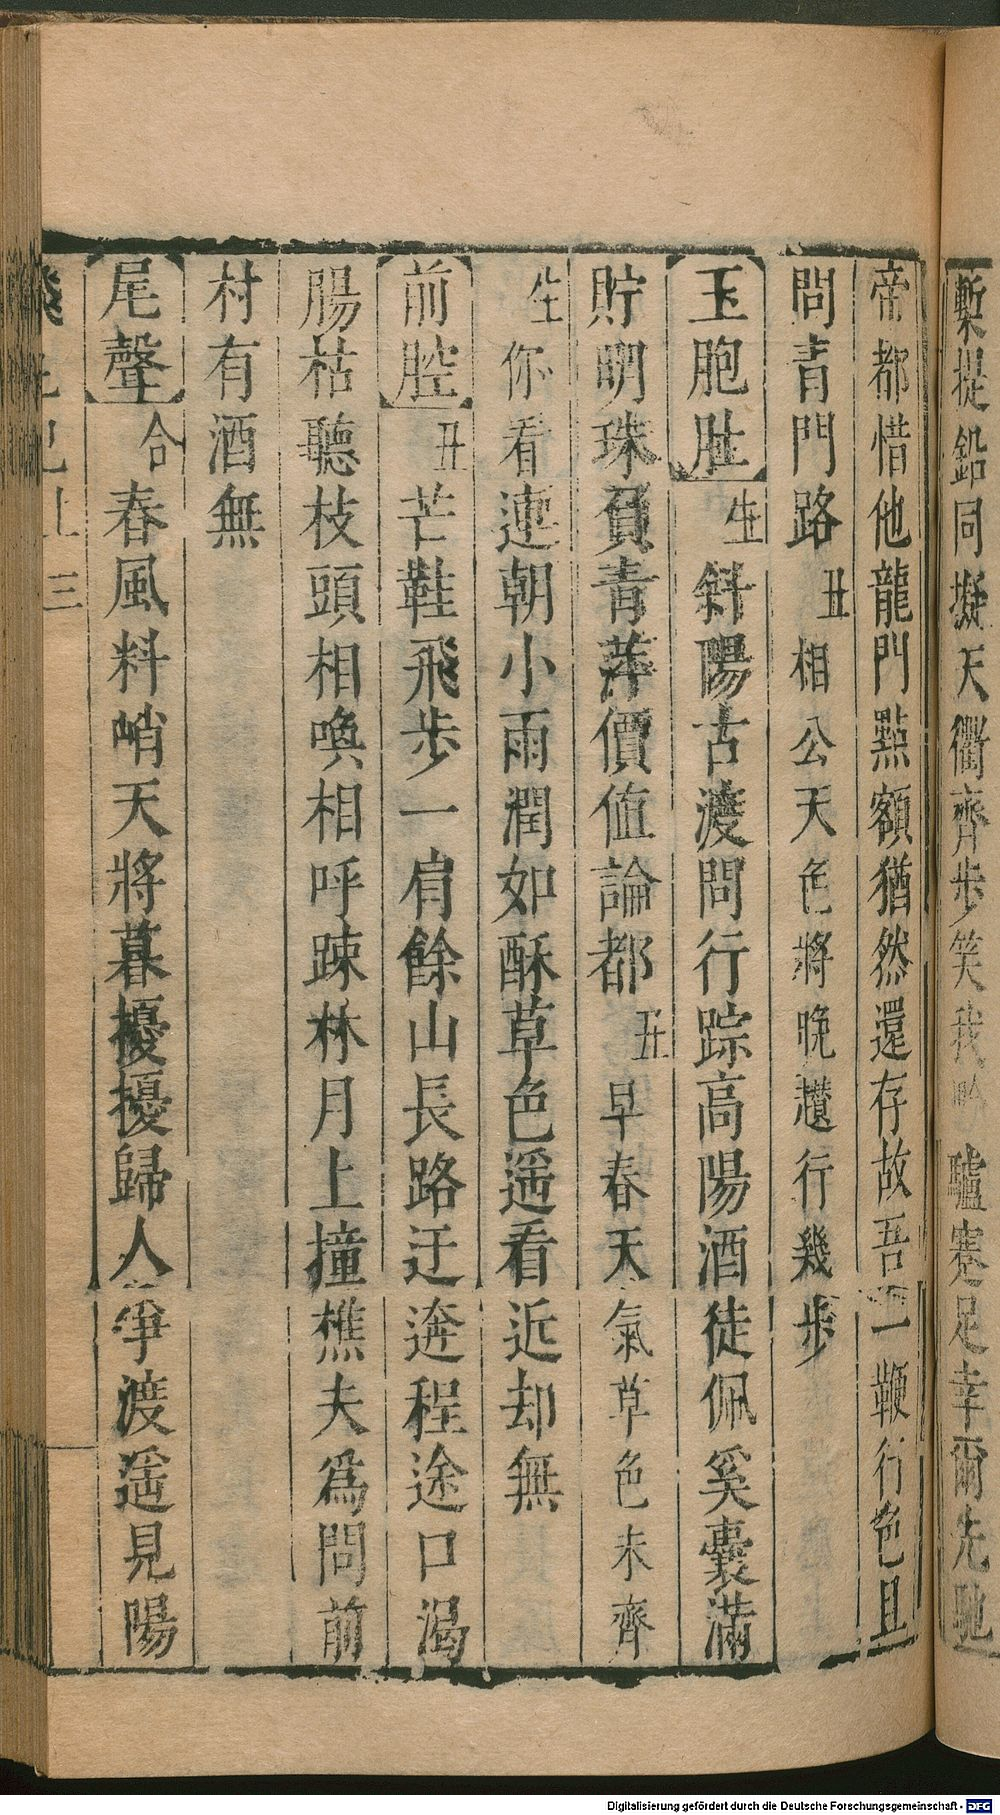 槧提鉛同擬天衢齊步笑我 驢蹇足幸爾先馳
帝都惜他龍門點額猶然還存故吾一鞭行色且
問青門路 丑相公天色將晚趲行幾步
玉胞肚 生斜陽古渡問行踪高陽酒徒佩奚囊滿
貯明珠負青萍價值論都 丑早春天氣草色未齊
生你看連朝小雨潤如酥草色遥看近却無
前腔 丑芒鞋飛步一肩餘山長路迂遊程途口渴
腸枯聽枝頭相喚相呼踈林月上撞樵夫爲問前
村有酒無
尾聲 合春風料峭天將暮擾擾歸人爭渡遥見陽
上 三
Digitalisierung gefördert durch die Deutsche Forschungsgemeinschaft - DFG